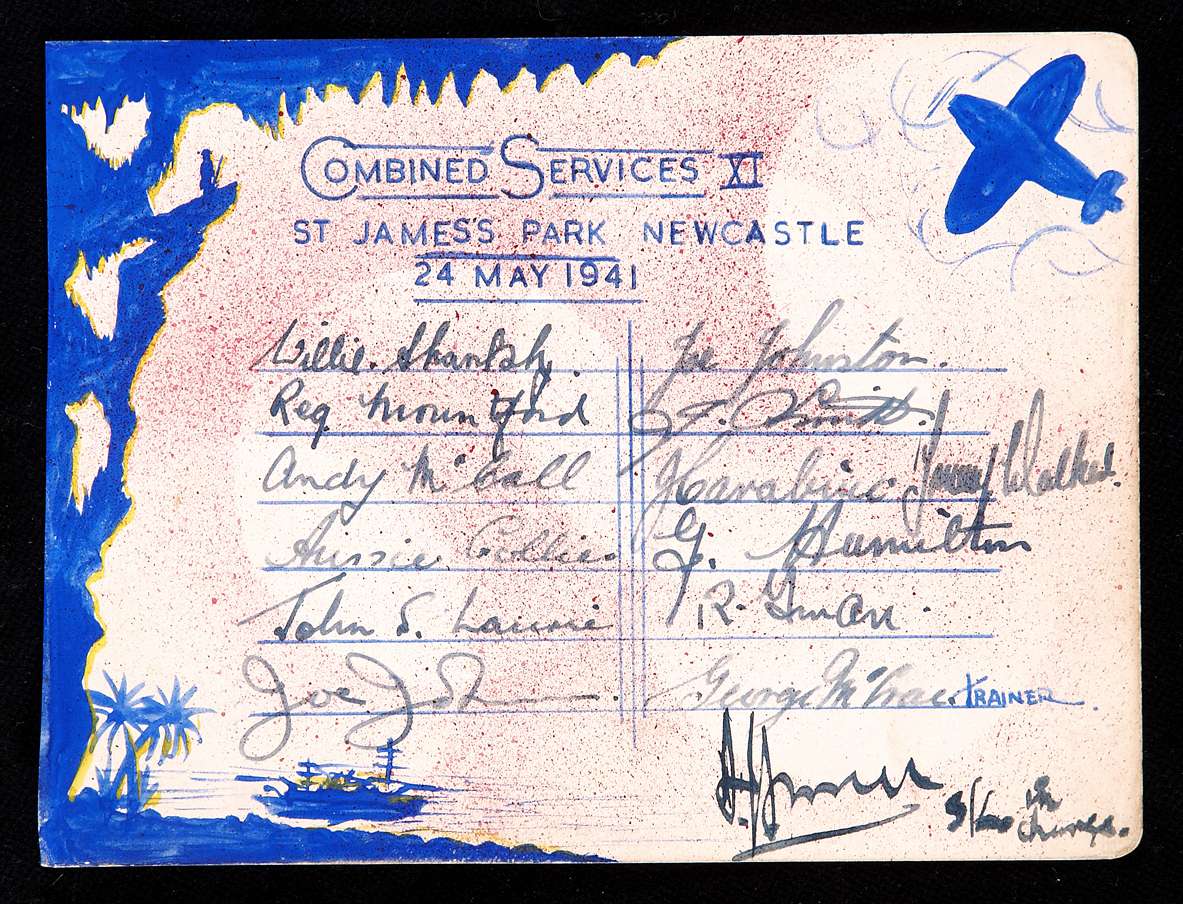 COMBINED SERVICES XI
ST JAMES'S PARK NEWCASTLE
24 MAY 1941
Willie.
Reg Mountford
Andy McCall
Aussie Collie
John S. Laurie
Joe
Joe Johnston.
J. Smith.
J Carabine
Jimmy Walker.
G. Hamilton
R.
George McCrae. TRAINER.
in
charge.